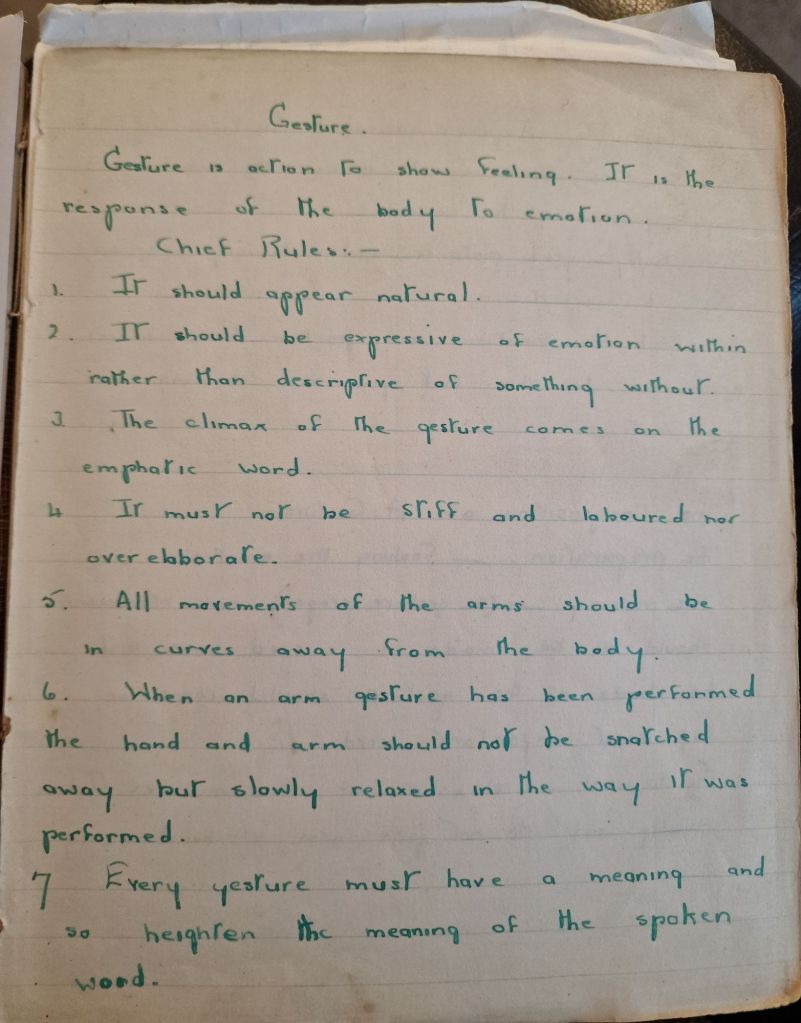 Gesture.
Gesture is action to show feeling. It is the
response of the body to emotion.
Chief Rules:-
1. It should appear natural.
2. It should be expressive of emotion within
rather than descriptive of something without.
3 The climax of the gesture comes on the
emphatic word.
4 It must not be stiff and laboured nor
over elaborate.
5. All movements of the arms should be
in curves away from the body.
6. When an arm gesture has been performed
the hand and arm should not be snatched
away but slowly relaxed in the way it was
performed.
7 Every gesture must have a meaning and
so heighten the meaning of the spoken
word.